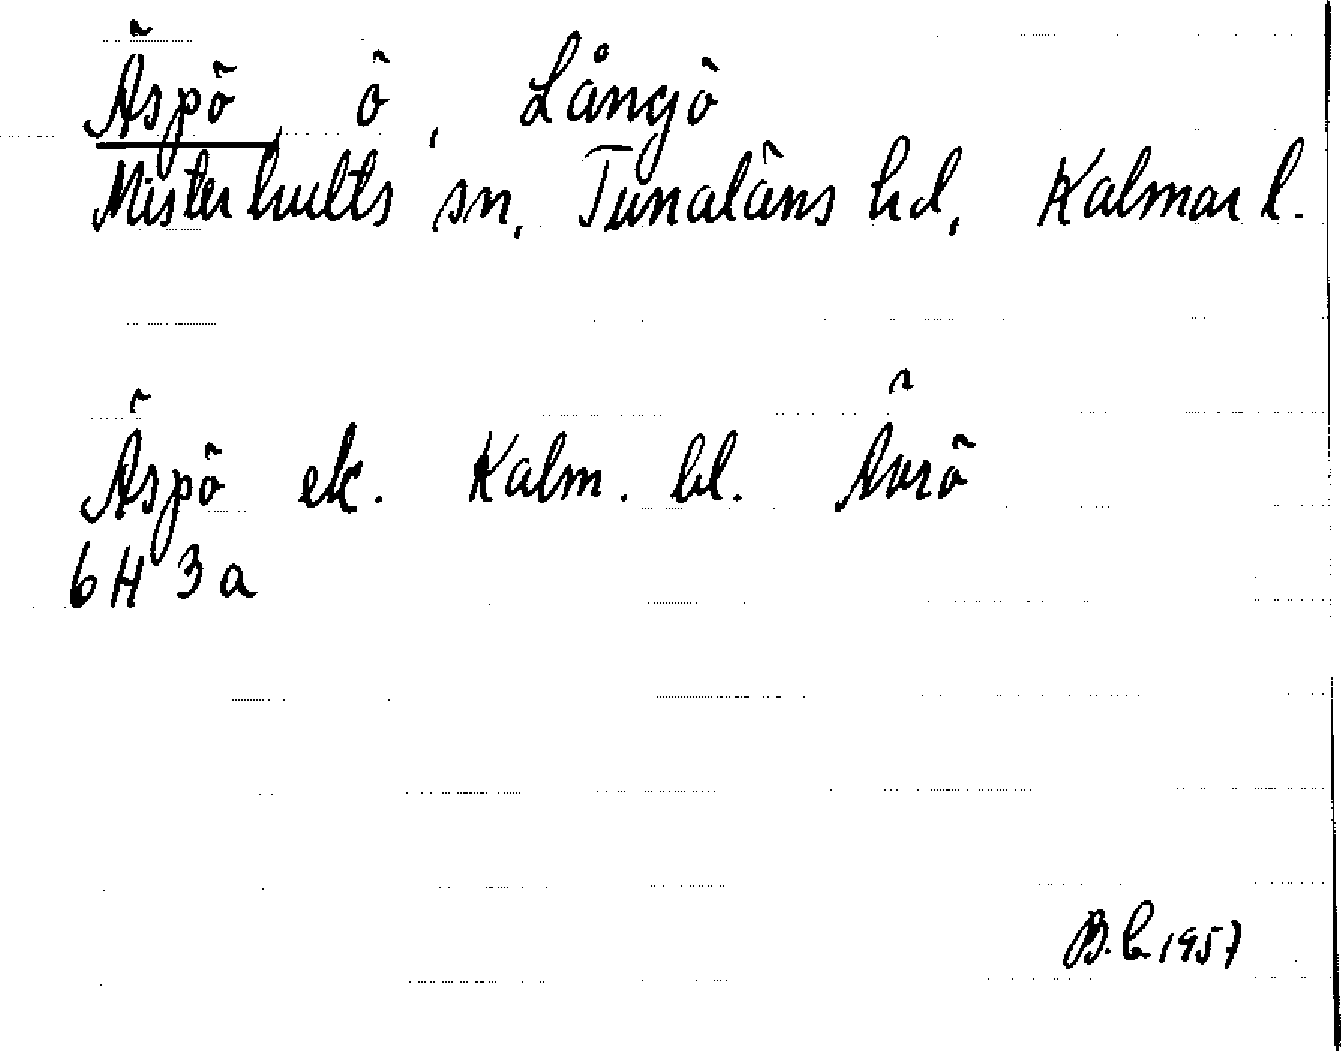 Äspö, ö, Långö
Misterhults sn, Tunaläns hd, Kalmar l.
Äspö ek. Kalm. bl. Ävrö
6H 3a
B.L. 1957